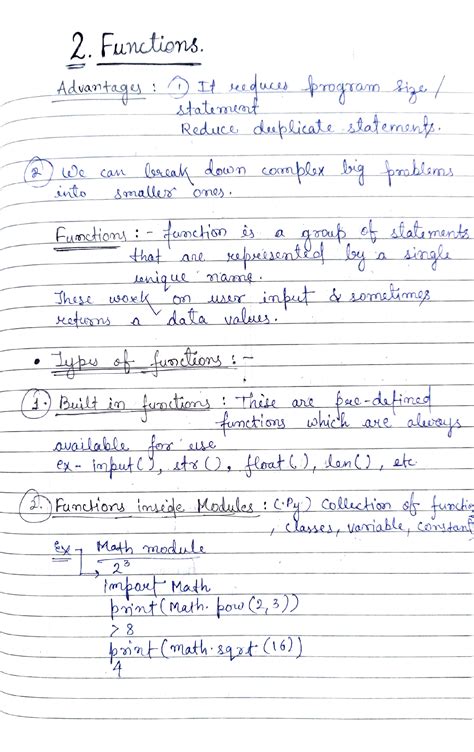 2. Functions.
Advantages : ① It reduces program size /
statement
Reduce duplicate statements.
② We can break down complex big problems
into smaller ones.
Functions : - function is a group of statements
that are represented by a single
unique name.
These work on user input & sometimes
returns a data values.
• Types of functions : -
①. Built in functions : These are pre-defined
functions which are always
available for use
ex - input( ), str( ), float( ), len( ), etc
②. Functions inside Modules : (.Py) Collection of functio
, classes, variable, constant
Ex Math module
→ 2³
import Math
print(Math.pow(2,3))
> 8
print(math.sqrt(16))
4